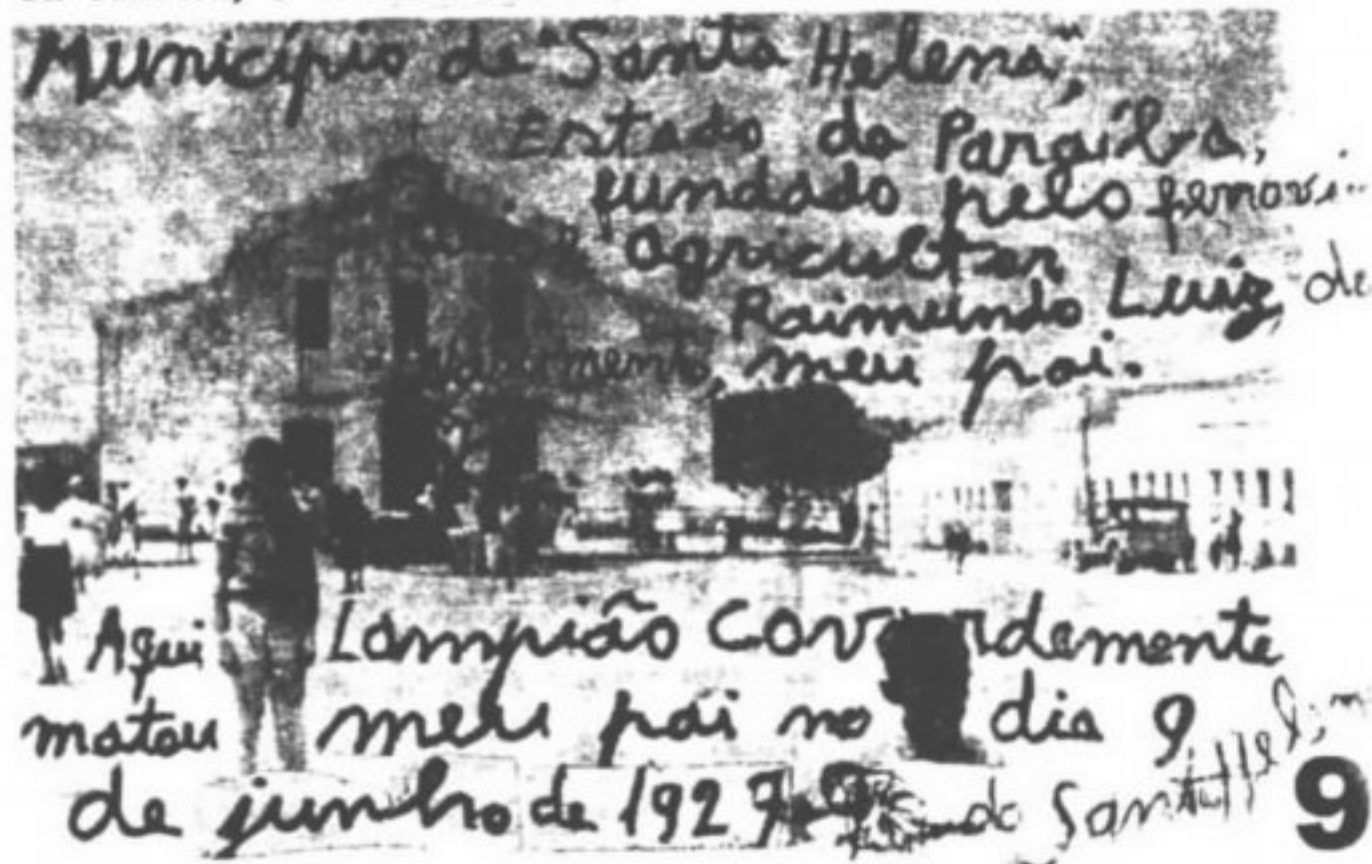 Município de "Santa Helena",
Estado da Paraíba,
fundado pelo ferrovi-
ário e agricultor
Raimundo Luiz de
Nascimento, meu pai.
Aqui Lampião Covardemente
matou meu pai no dia 9
de junho de 1927
do Santa Helena
9